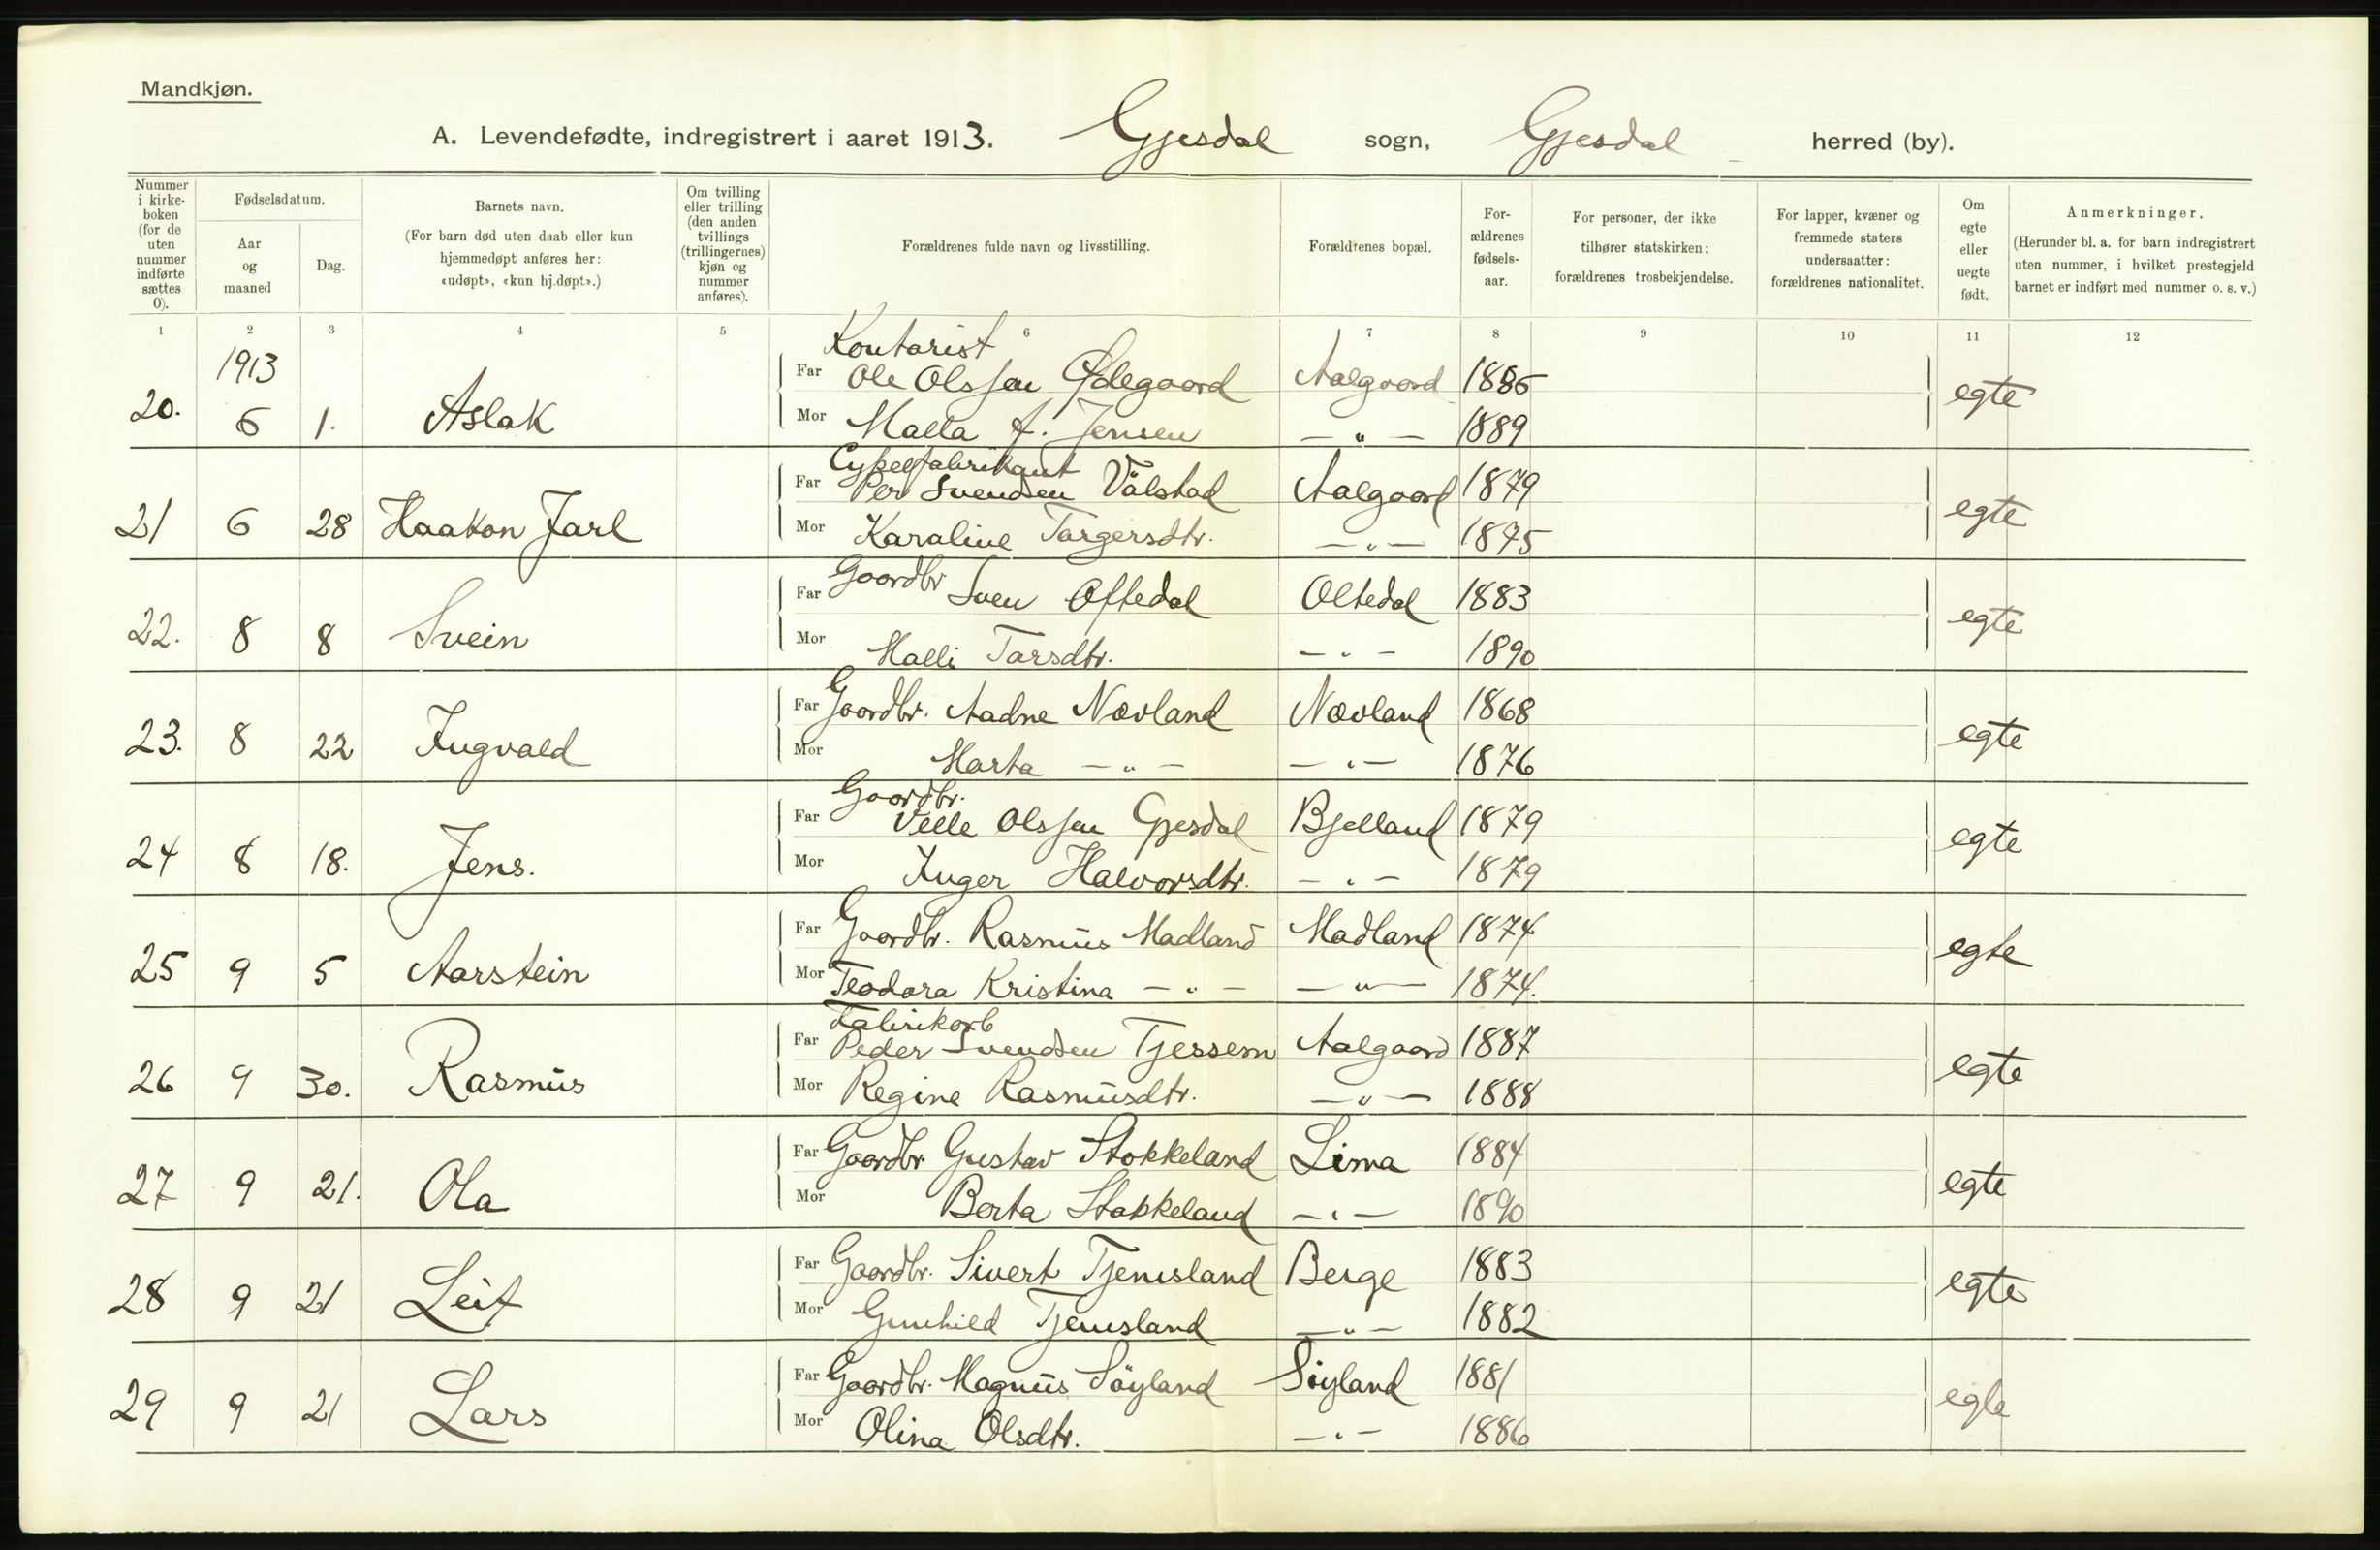 Mandkjøn.
A. Levendefødte, indregistrert i aaret 1913. Gjesdal sogn, Gjesdal herred (by).
Nummer i kirke-boken (for de uten nummer indførte sættes 0).
Fødselsdatum.
Aar og maaned
Dag.
Barnets navn.
(For barn død uten daab eller kun hjemmedøpt anføres her: «udøpt», «kun hj.døpt».)
Om tvilling eller trilling (den anden tvillings (trillingernes) kjøn og nummer anføres).
Forældrenes fulde navn og livsstilling.
Forældrenes bopæl.
For-ældrenes fødsels-aar.
For personer, der ikke tilhører statskirken: forældrenes trosbekjendelse.
For lapper, kvæner og fremmede staters undersaatter: forældrenes nationalitet.
Om egte eller uegte født.
Anmerkninger.
(Herunder bl. a. for barn indregistrert uten nummer, i hvilket prestegjeld barnet er indført med nummer o. s. v.)
1 2 3 4 5 6 7 8 9 10 11 12
1913
Kontorist
20. 6 1. Aslak Far Ole Olssen Ødegaard Aalgaard 1886 egte
Mor Malla A. Jensen — " — 1889
Cykelfabrikant
21 6 28 Haakon Jarl Far Per Svendsen Vålstad Aalgaard 1879 egte
Mor Karaline Targersdtr. — " — 1875
22. 8 8 Svein Far Gaardbr Sven Oftedal Oltedal 1883 egte
Mor Malli Tarsdtr. — " — 1890
23. 8 22 Ingvald Far Gaardbr. Aadne Nævland Nævland 1868 egte
Mor Marta — " — — " — 1876
Gaardbr.
24 8 18. Jens. Far Velle Olssen Gjesdal Bjelland 1879 egte
Mor Inger Halvorsdtr. — " — 1879
25 9 5 Aarstein Far Gaardbr. Rasmus Madland Madland 1874 egte
Mor Teodora Kristina — " — — " — 1874.
Fabrikarb
26 9 30. Rasmus Far Peder Svendsen Tjessem Aalgaard 1887 egte
Mor Regine Rasmusdtr. — " — 1888
27 9 21. Ola Far Gaardbr. Gustav Stokkeland Lima 1884 egte
Mor Berta Stokkeland — " — 1890
28 9 21 Leif Far Gaardbr. Sivert Tjemsland Berge 1883 egte
Mor Gunhild Tjemsland — " — 1882
29 9 21 Lars Far Gaardbr. Magnus Söyland Söyland 1881 egte
Mor Olina Olsdtr. — " — 1886